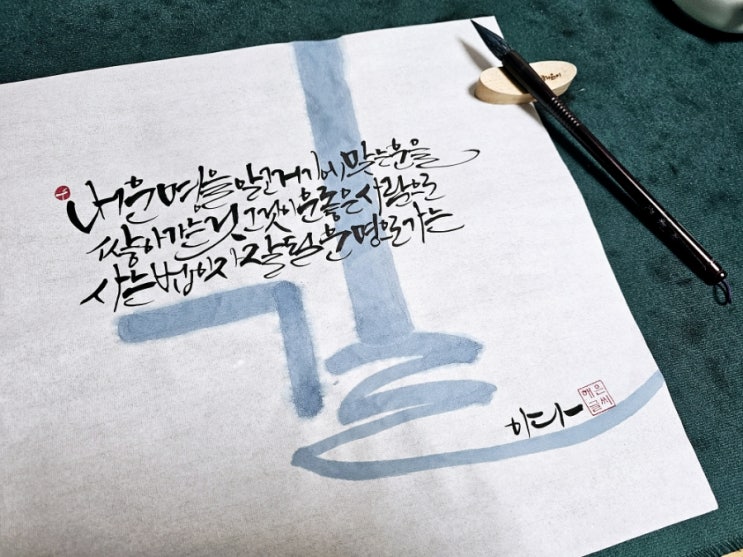 내 운명을 알고 거기에 맞는 운을
쌓아가는 것 그것이 운 좋은 사람으로
사는 법이자 잘될 운명으로 가는
길
이다
해은
글씨